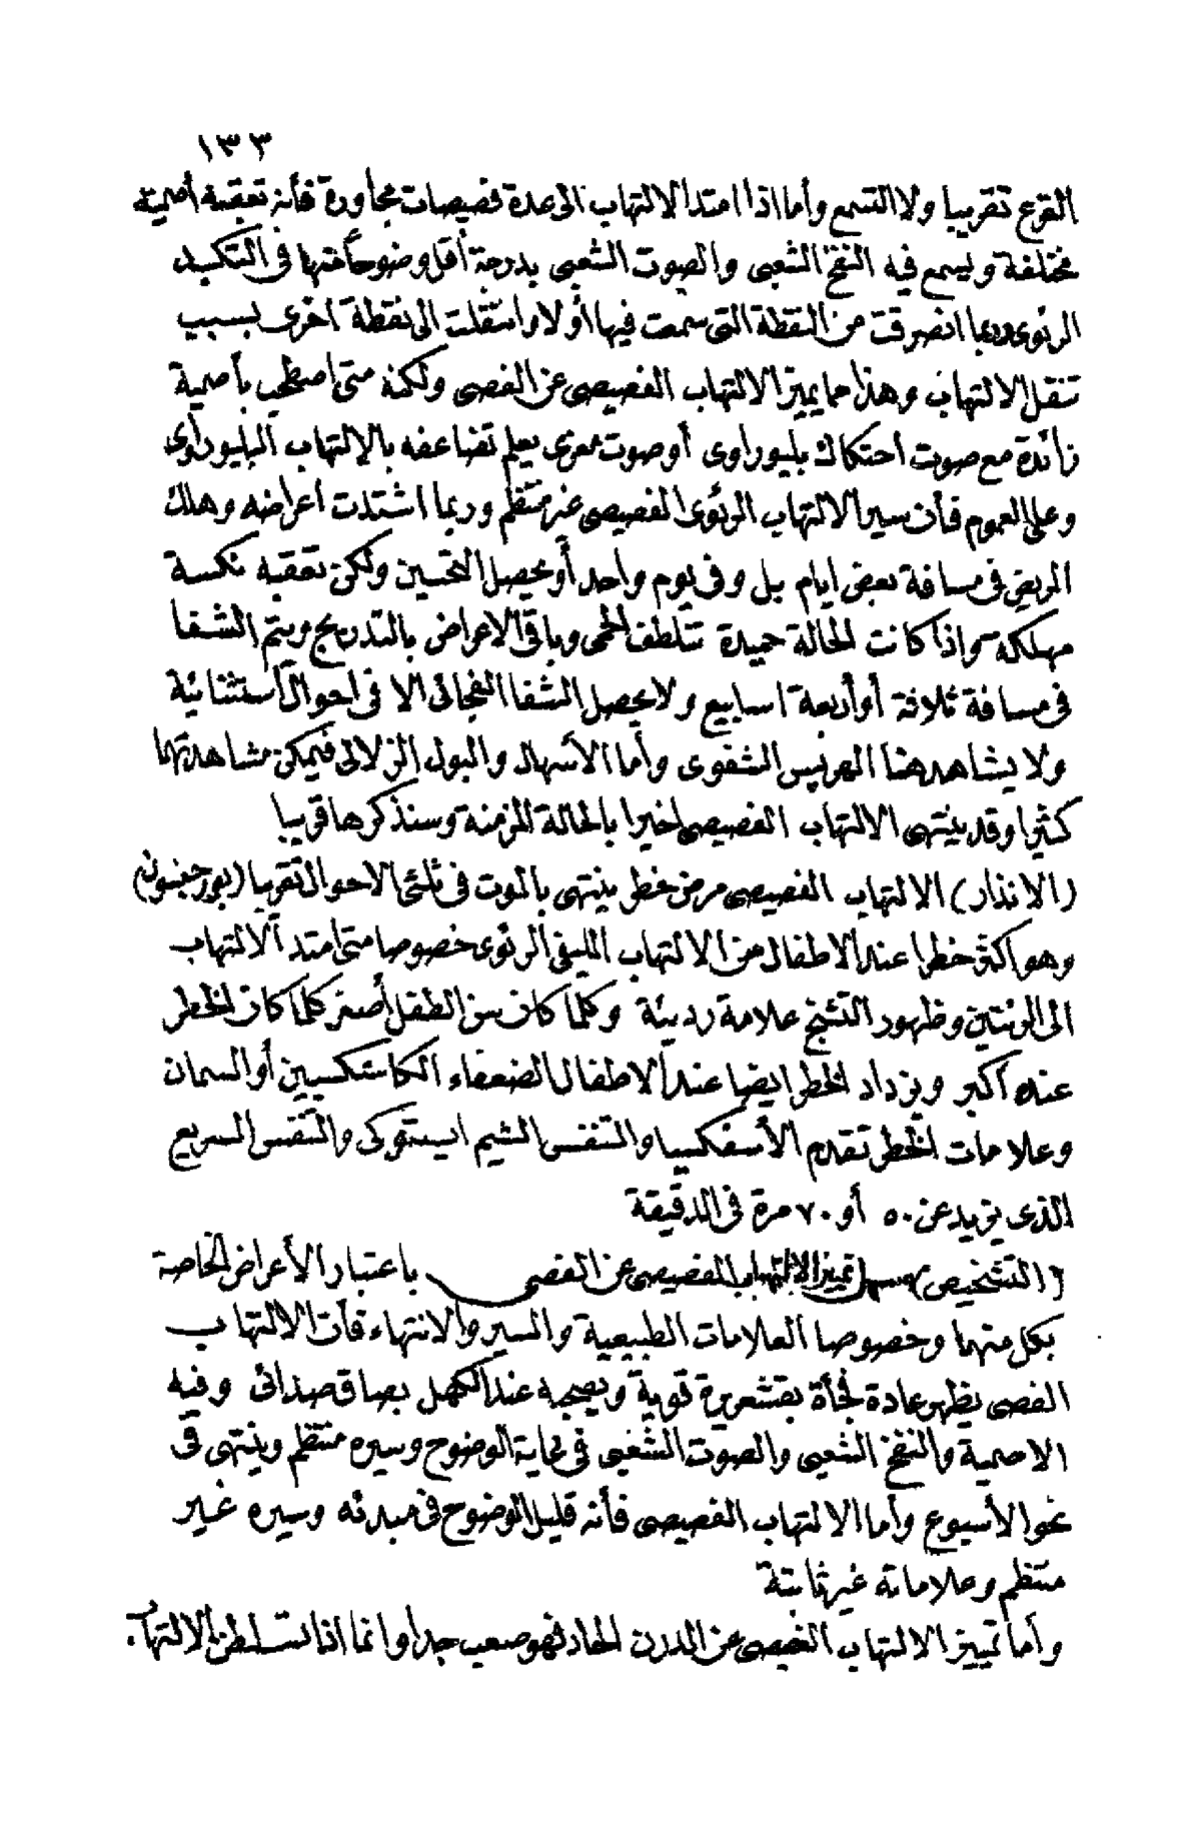 ١٣٣
القرع تقريبا ولا التسمع وأما اذا امتد الالتهاب الى عدة فصيصات مجاورة فأنه تعقبه أصمية
مختلفة ويسمع فيه النفخ الشعبى والصوت الشعبى بدرجة أقل وضوحاً عنها فى التكبد
الرئوى وربما انصرفت من النقطة التى سمعت فيها أولا وانتقلت الى نقطة اخرى بسبب
تنقل الالتهاب وهذا مما يميز الالتهاب الفصيصى عن الفصى ولكنه متى اصطحب بأصمية
زائدة مع صوت احتكاك بليوراوى أو صوت معزى يعلم تضاعفه بالالتهاب البليوراوى
وعلى العموم فأن سير الالتهاب الرئوى الفصيصى غير منتظم وربما اشتدت اعراضه وهلك
المريض فى مسافة بعض ايام بل وفى يوم واحد أو يحصل التحسين ولكن تعقبه نكسة
مهلكة واذا كانت الحالة حميدة تتلطف الحمى وباقى الاعراض بالتدريج ويتم الشفا
فى مسافة ثلاثة أو أربعة اسابيع ولا يحصل الشفا الفجائى الا فى احوال استثنائية
ولا يشاهد هنا الهربس الشفوى وأما الأسهال والبول الزلالى فيمكن مشاهدتهما
كثيرا وقد ينتهى الالتهاب الفصيصى اخيرا بالحالة المزمنة وسنذكرها قريبا
(الانذار) الالتهاب الفصيصى مرض خطر ينتهى بالموت فى ثلثى الاحوال تقريبا (بورجنسون)
وهو أكثر خطرا عند الاطفال من الالتهاب الليفى الرئوى خصوصا متى امتد الالتهاب
الى الرئتين وظهور التشنج علامة رديئة وكلما كان سن الطفل أصغر كلما كان الخطر
عنده أكبر ويزداد الخطر ايضا عند الاطفال الضعفاء الكاشكسيين أو السمان
وعلامات الخطر تقدم الأسفكسيا والتنفس الشيم استوكى والتنفس السريع
الذى يزيد عن ٥٠ أو ٧٠ مرة فى الدقيقة
(التشخيص) يسهل تمييز الالتهاب الفصيصى عن الفصى باعتبار الأعراض الخاصة
بكل منهما وخصوصا العلامات الطبيعية والسير والانتهاء فأن الالتهاب
الفصى يظهر عادة فجأة بقشعريرة قوية ويصحبه عند الكهل بصاق صدائى وفيه
الاصمية والنفخ الشعبى والصوت الشعبى فى غاية الوضوح وسيره منتظم وينتهى فى
نحو الأسبوع وأما الالتهاب الفصيصى فأنه قليل الوضوح فى مبدئه وسيره غير
منتظم وعلاماته غير ثابتة
وأما تمييز الالتهاب الفصيصى عن الدرن الحاد فهو صعب جدا وانما اذا تسلطن الالتهاب